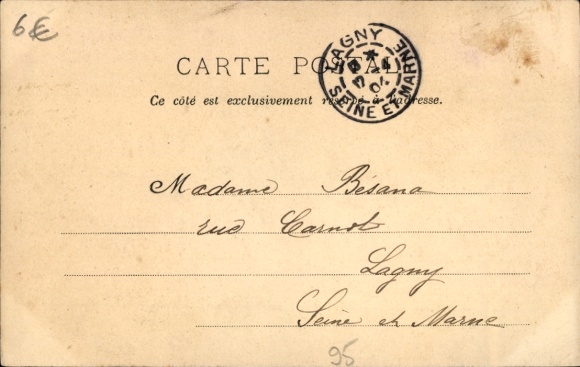 6€
LAGNY
SEINE ET MARNE
04
CARTE POSTALE
Ce côté est exclusivement reservé à l'adresse.
Madame Bésana
rue Carnot
Lagny
Seine et Marne
95